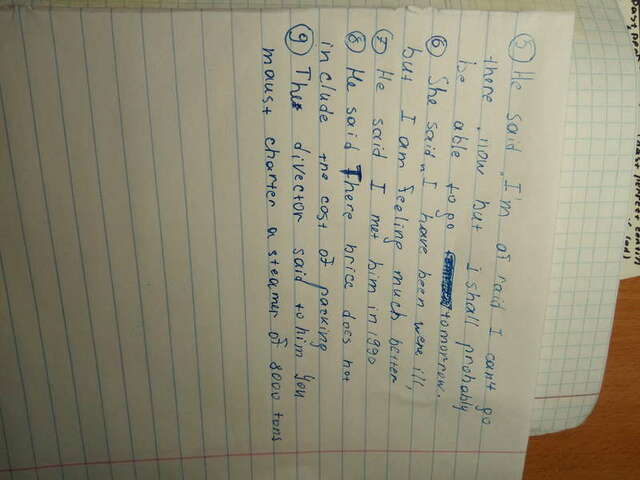 ⑤ He said „I'm af raid I can't go
there now but I shall probably
be able to go tomorrow.
⑥ She said „I have been were ill,
but I am feeling much better
⑦ He said I met him in 1990
⑧ He said There brice does not
include the cost of packing
⑨ The director said to him you
maust charter a steamer of 8000 tons